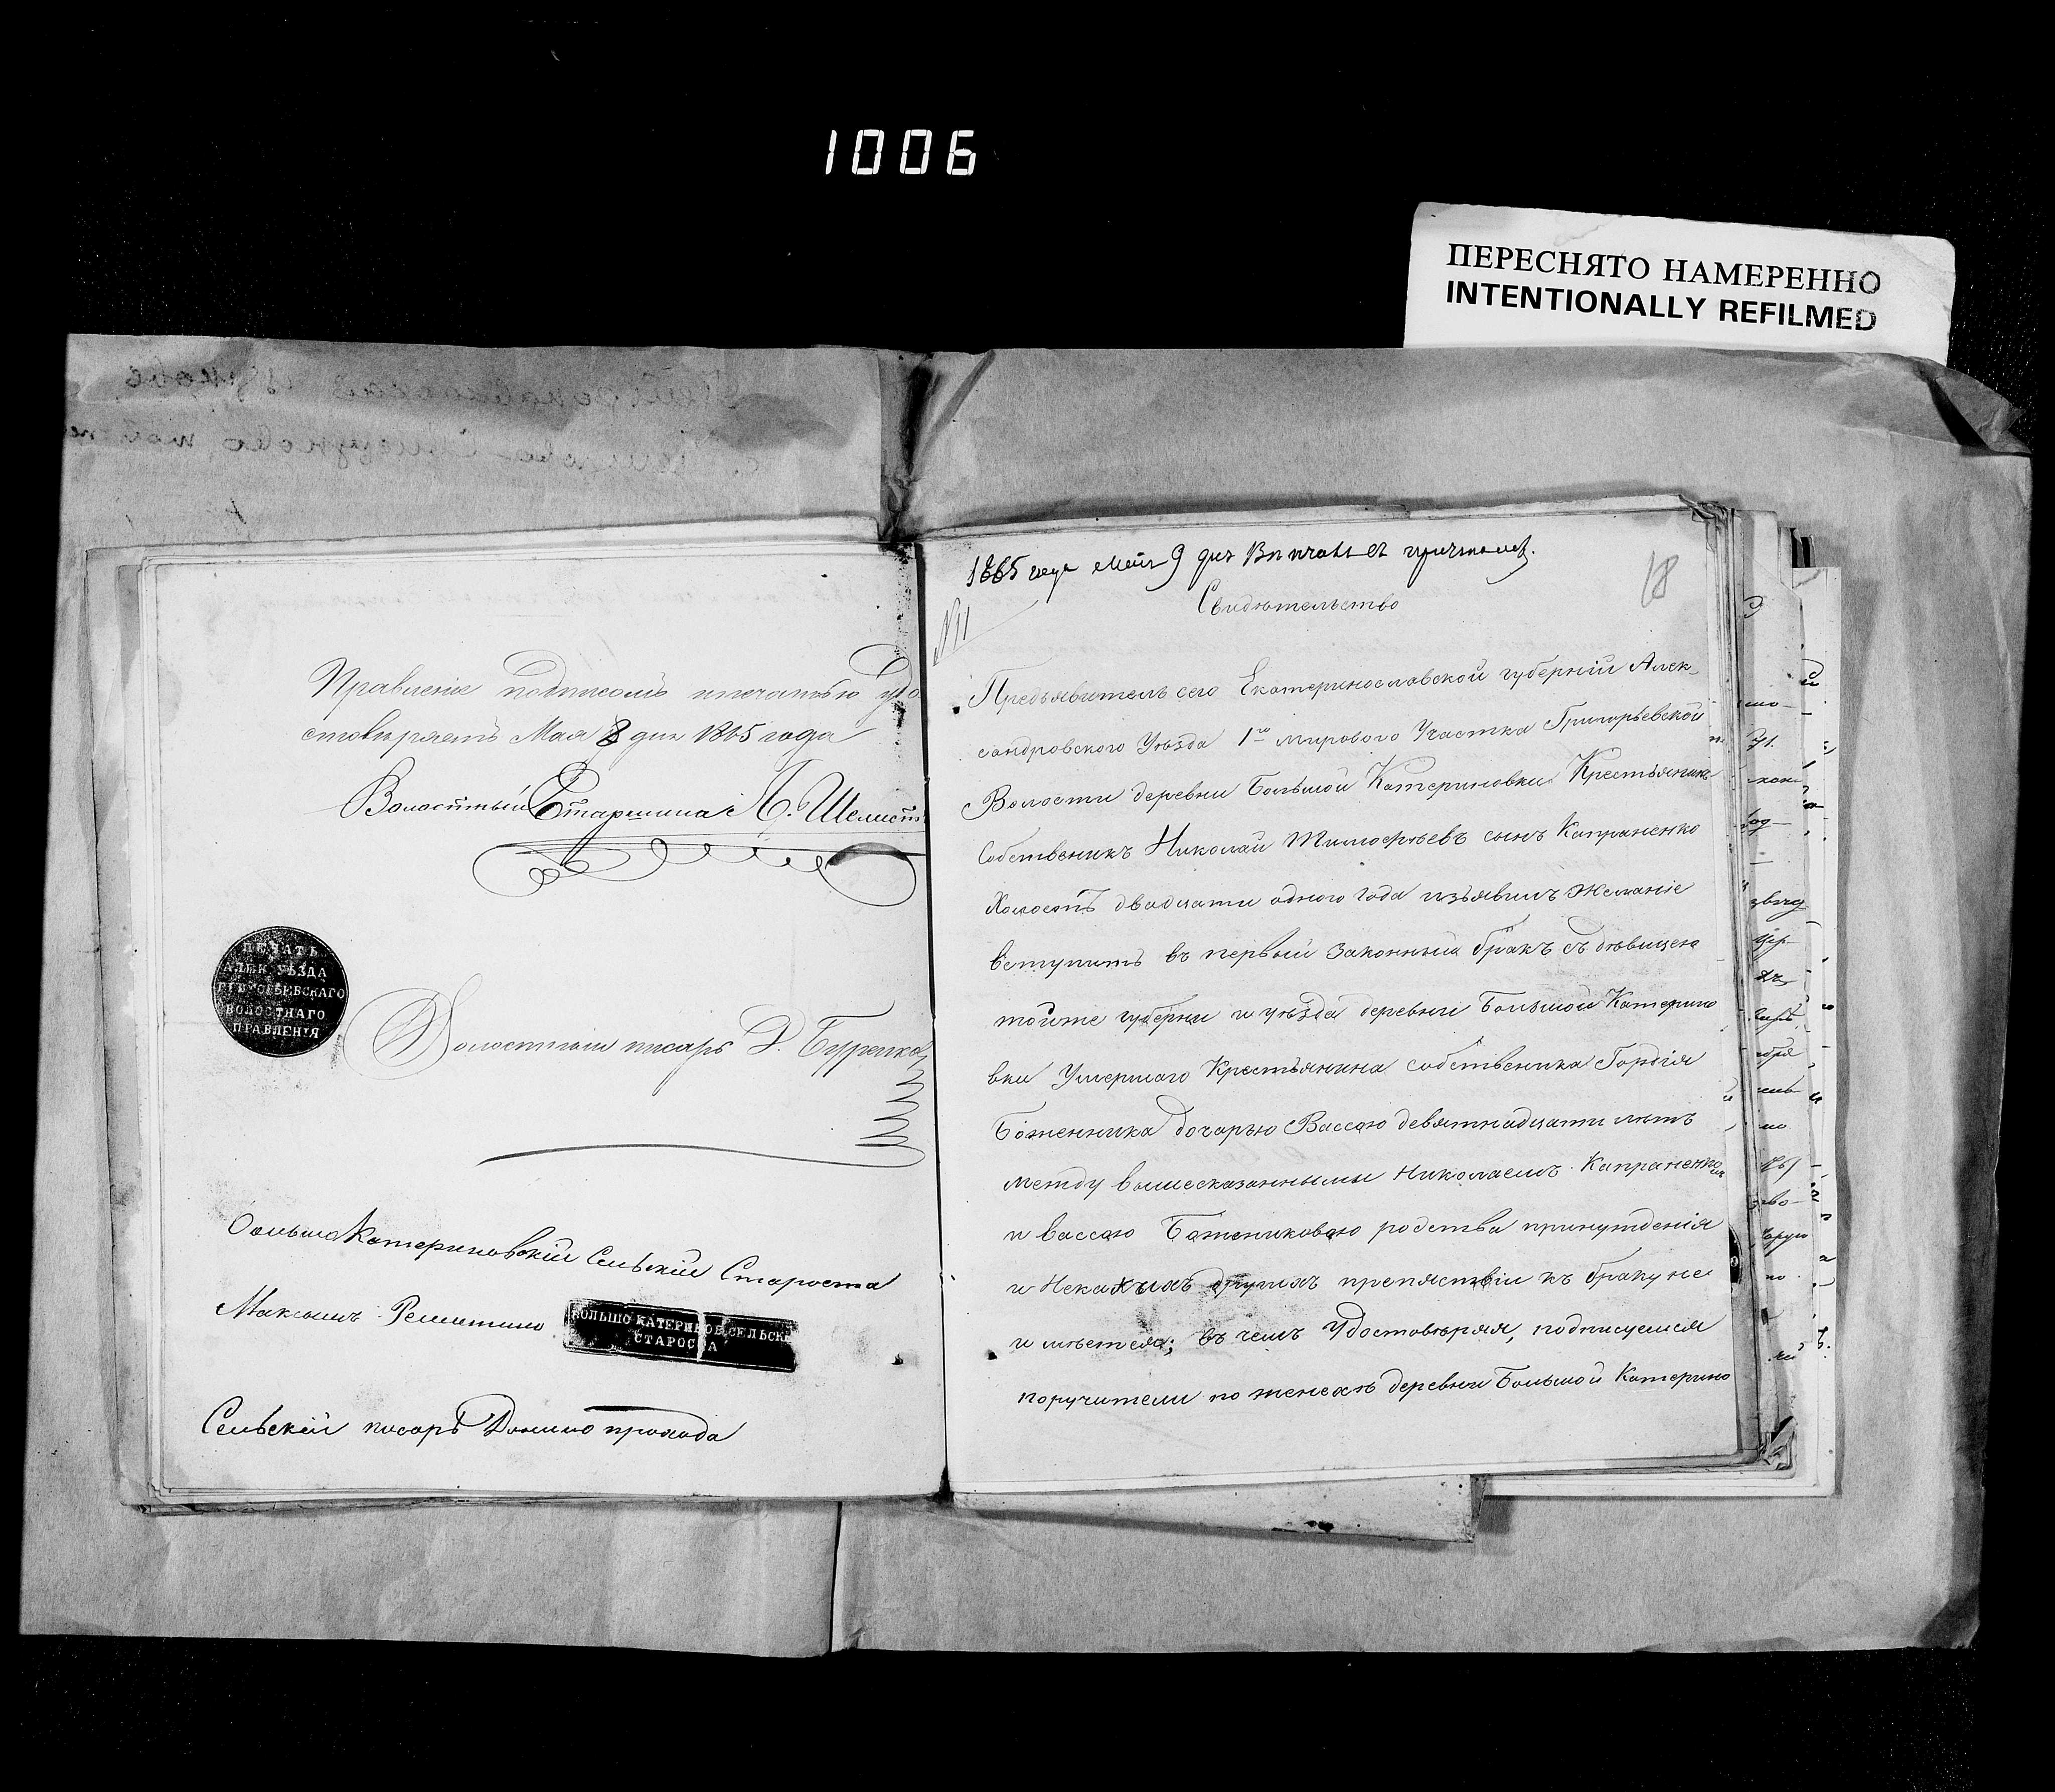 1006
ПЕРЕСНЯТО НАМЕРЕННО
INTENTIONALLY REFILMED
Правленіе подписомъ и печатью удо
стовѣряетъ Мая 8 дня 1865 года
Волостный Старшина А. Шелест
ПЕЧАТЬ
АЛЕК. УѢЗДА
ГРИГОРЬЕВСКАГО
ВОЛОСТНАГО
ПРАВЛЕНІЯ
Волостный писарь Д. Буренко
Большо Катериновскій Сельскій Староста
Максимъ
БОЛЬШО КАТЕРИНОВ. СЕЛЬСК
СТАРОСТА
Сельскій писарь
1865 года Мая 9 дня
18
Свидѣтельство
№ 11
Предъявитель сего Екатеринославской губерніи Алек-
сандровского Уѣзда 1го мирового Участка Григорьевской
Волости деревни Большой Катериновки Крестьянинъ
Собственикъ Николай Тимофѣевъ сынъ Капраненко
Холостъ двадцати одного года изъявилъ желаніе
вступить въ первый законный бракъ съ дѣвицею
тойже губерни и уѣзда деревни Большой Катерино
вки Умершаго Крестьянина собственика Гордѣя
Боженника дочерью Вассою девятнадцати лѣтъ
между вышесказанными Николаемъ Капраненкомъ
и Вассою Боженниковою родства принужденія
и Некакихъ другихъ препяствіи къ браку не
имѣется; въ чемъ Удостовѣряя, подписуемся
поручители по женехѣ деревни Большой Катерино